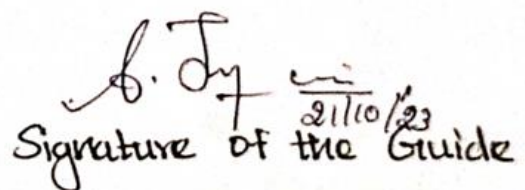 21/10/23
Signature of the Guide